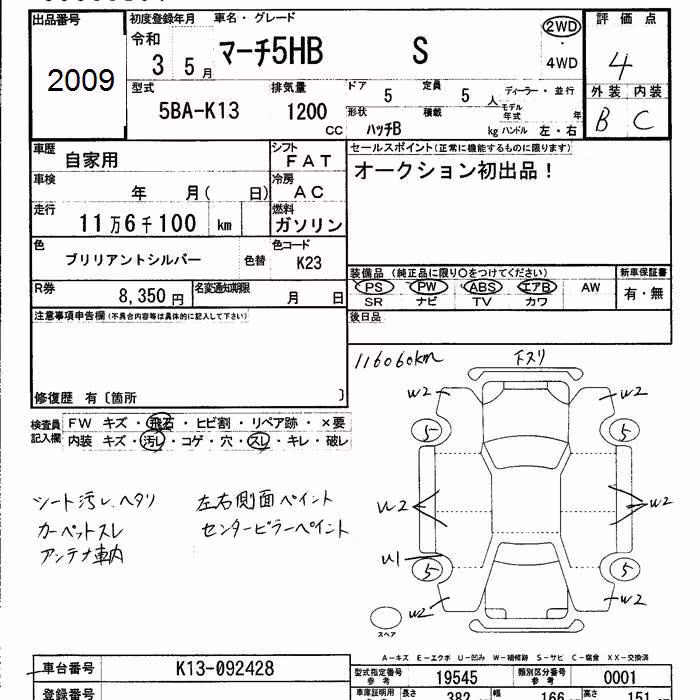 出品番号
2009
初度登録年月 車名・グレード
令和
3 5月 マーチ5HB S
2WD
・
4WD
評価点
4
外装 内装
B C
型式 排気量 ドア 定員 ディーラー・並行
5BA-K13 1200 cc 5 5 人 モデル年式 年
形状 積載
ハッチB kg ハンドル 左・右
車歴 自家用
シフト FAT
車検 年 月( 日)
冷房 AC
走行 11万6千100 km
燃料 ガソリン
色 ブリリアントシルバー 色替
色コード K23
R券 8,350円 名変通知期限 月 日
セールスポイント(正常に機能するものに限ります)
オークション初出品!
装備品(純正品に限り○をつけてください)
PS PW ABS エアB AW
SR ナビ TV カワ
新車保証書
有・無
後日品
注意事項申告欄(不具合内容等は具体的に記入して下さい)
修復歴 有〔箇所 〕
検査員記入欄
FW キズ・飛石・ヒビ割・リペア跡・×要
内装 キズ・汚レ・コゲ・穴・スレ・キレ・破レ
シート汚レ、ヘタリ
カーペットスレ
アンテナ車内
左右側面ペイント
センターピラーペイント
116060km
下スリ
W2 W2
5 5
W2 W2
U1
5 5
W2 W2
スペア
A-キズ E-エクボ U-凹み W-補修跡 S-サビ C-腐食 XX-交換済
車台番号 K13-092428
登録番号
型式指定番号 参考 19545 類別区分番号 参考 0001
車庫証明用 長さ 382 幅 166 高さ 151